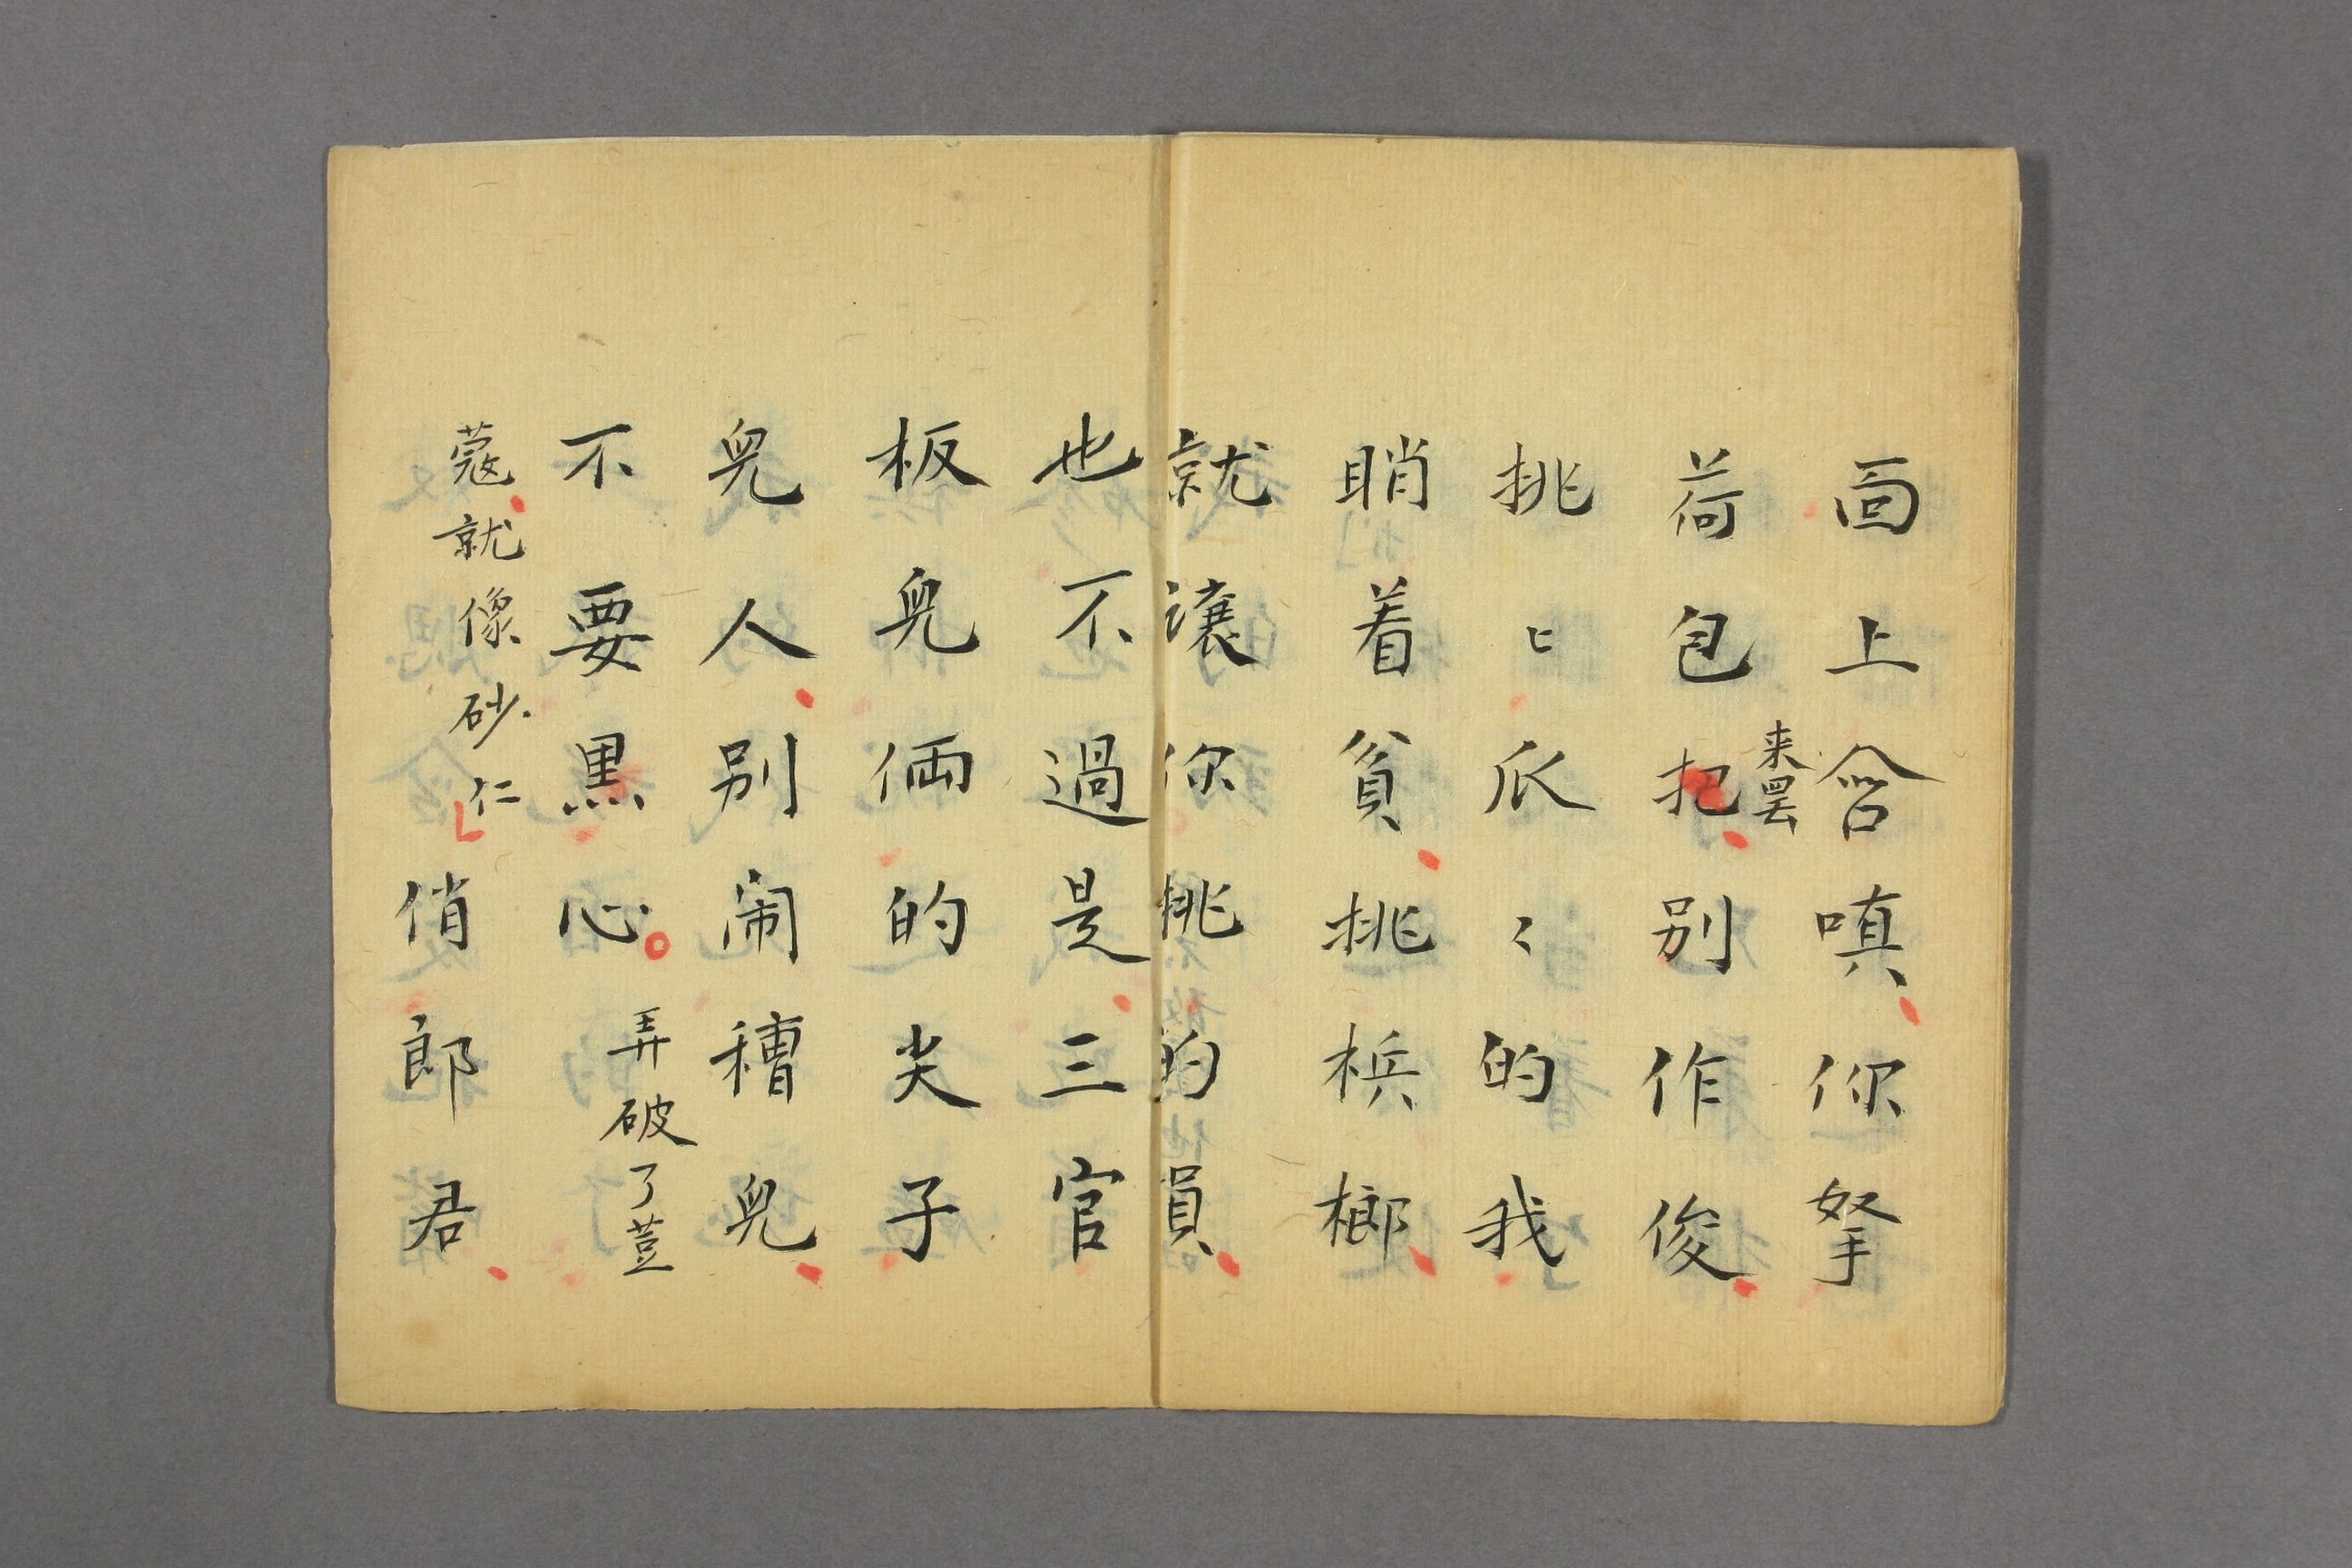 面上含嗔你拏
来罢
荷包把别作俊
挑〻爪〻的我
睄着貧挑梹榔
就讓你挑的員
也不過是三官
板兒倆的尖子
兒人别闹糟兒
不要黒心弄破了荳
蔻就像砂仁俏郎君